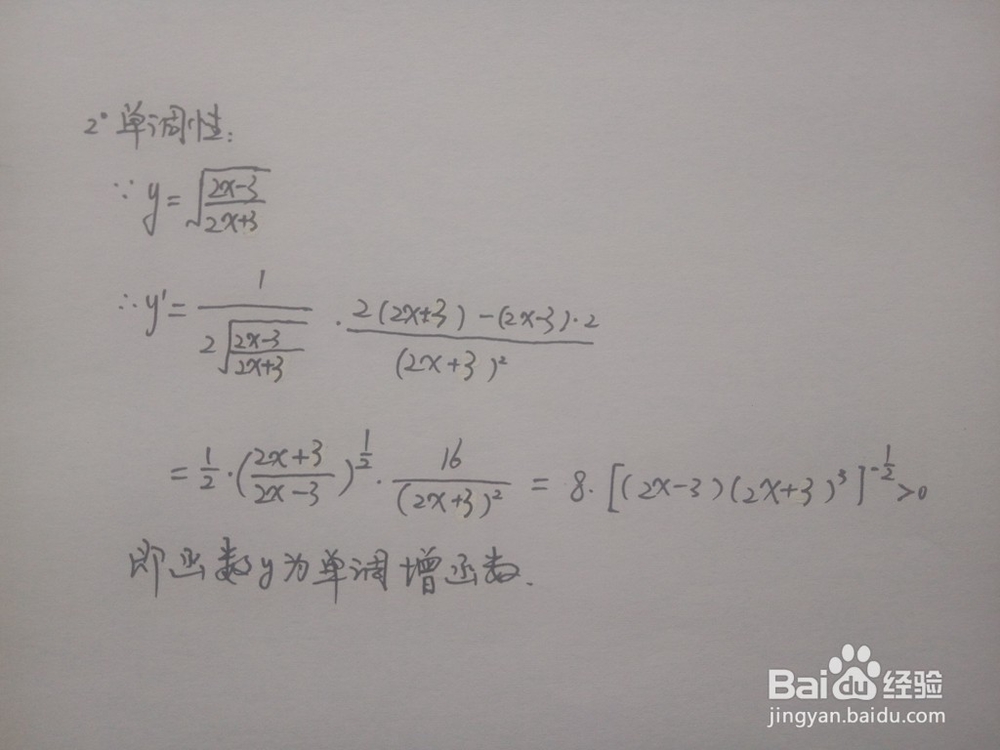 2° 单调性:
∵ y = √((2x-3)/(2x+3))
∴ y' = 1/(2√((2x-3)/(2x+3))) · (2(2x+3)-(2x-3)·2)/(2x+3)²
= 1/2 · ((2x+3)/(2x-3))^(1/2) · 16/(2x+3)² = 8·[(2x-3)(2x+3)³]^(-1/2) >0
即函数y为单调增函数.
Baidu 经验
jingyan.baidu.com